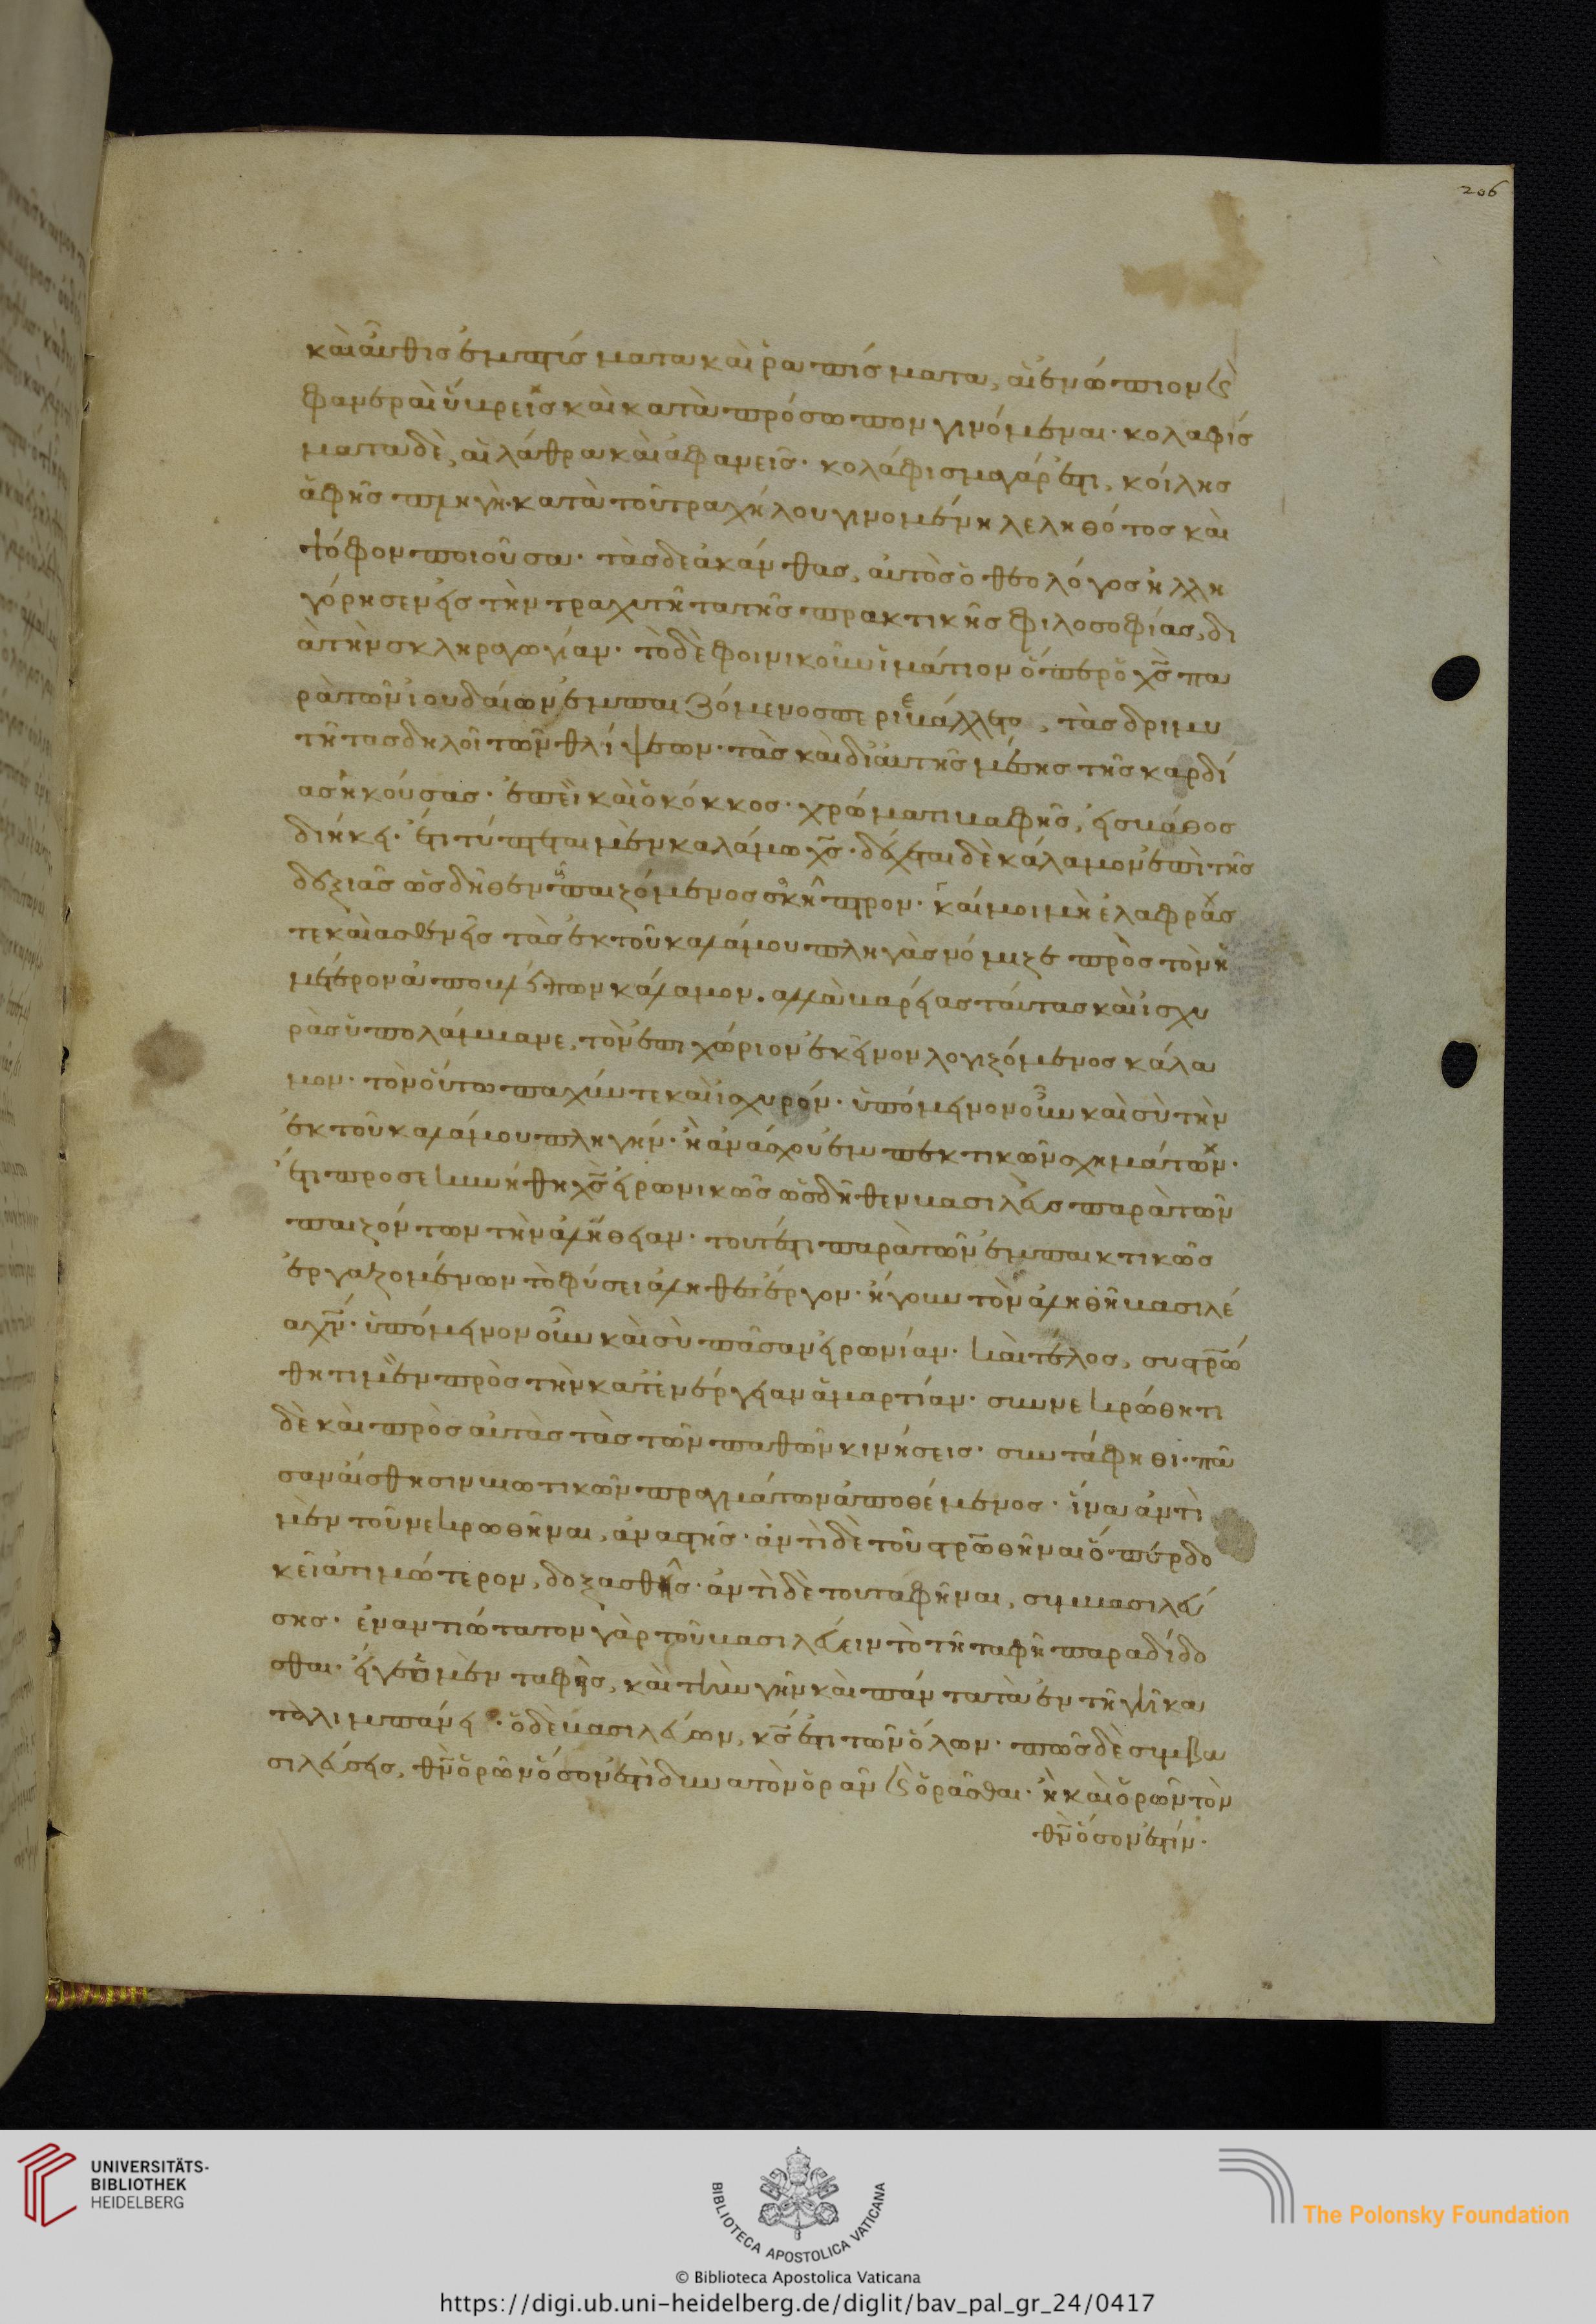 206
καὶ αὖθις ἐμπτύσματα καὶ ῥαπίσματα, αἱ ἐνώπιον καὶ
φανεραὶ ὕβρεις καὶ κατὰ πρόσωπον γινόμεναι· κολαφίσ
ματα δὲ, αἱ λάθρα καὶ ἀφανεῖς· κολάφισμα γάρ ἐστι, κοίλης
ἁφῆς πληγὴ· κατὰ τοῦ τραχήλου γινομένη λεληθότος καὶ
ψόφον ποιοῦσα· τὰς δὲ ἀκάνθας, αὐτὸς ὁ θεολόγος ἠλλη
γόρησεν εἰς τὴν τραχύτητα τῆς πρακτικῆς φιλοσοφίας, δι
ὰ τὴν σκληραγωγίαν· τὸ δὲ φοινικοῦν ἱμάτιον ὅπερ ὁ χς πα
ρὰ τῶν ἰουδαίων ἐμπαιζόμενος περιεβάλλετο, τὰς δριμυ
τῆτας δηλοῖ τῶν θλίψεων· τὰς καὶ δι αὐτῆς μέσης τῆς καρδί
ας ἡκούσας· ἐπεὶ καὶ ὁ κόκκος· χρώματι βαφῆς, εἰς βάθος
διήκει· ἔτι τύπτεται μὲν καλάμω χς· δέχεται δὲ κάλαμον ἐπὶ τῆς
δεξιᾶς ὡς δῆθεν παιζόμενος σκῆπτρον· καί μοι μὴ ἐλαφρὰς
τε καὶ ἀσθενεῖς τὰς ἐκ τοῦ καλάμου πληγὰς νόμιζε πρὸς τὸν ἡ
μέτερον ἀποβλέπων κάλαμον. ἀλλὰ βαρείας ταύτας καὶ ἰσχυ
ρὰς ὑπολάμβανε, τὸν ἐπιχώριον ἐκεῖνον λογιζόμενος κάλα
μον· τὸν οὕτω παχύν τε καὶ ἰσχυρόν· ὑπόμεινον οὖν καὶ σὺ τὴν
ἐκ τοῦ καλάμου πληγήν· ἢ ἀνάσχου ἐμπεκτικῶν σχημάτων·
ἔτι προσεκυνήθη χς εἰρωνικῶς ὡς δῆθεν βασιλεὺς παρὰ τῶν
παιζόντων τὴν ἀλήθειαν· τουτέστι παρὰ τῶν ἐμπαικτικῶς
ἐργαζομένων τὸ φύσει ἀληθὲς ἔργον· ἤγουν τὸν ἀληθῆ βασιλέ
α χν· ὑπόμεινον οὖν καὶ σὺ πᾶσαν εἰρωνίαν· καὶ τέλος, συστρώ
θητι μὲν πρὸς τὴν κατ ἐνέργειαν ἁμαρτίαν· συννεκρώθητι
δὲ καὶ πρὸς αὐτὰς τὰς τῶν παθῶν κινήσεις· συντάφηθι· πᾶ
σαν αἴσθησιν βιωτικῶν πραγμάτων ἀποθέμενος· ἵνα ἀντὶ
μὲν τοῦ νεκρωθῆναι, ἀναστῇς· ἀντὶ δὲ τοῦ στρωθῆναι ὅπερ δο
κεῖ ἀτιμώτερον, δοξασθῇς· ἀντὶ δὲ τοῦ ταφῆναι, συμβασιλεύ
σης· ἐναντιώτατον γὰρ τοῦ βασιλεύειν τὸ τῇ ταφῇ παραδίδο
σθαι· μὲν ταφεὶς, καὶ τὴν γῆν καὶ πάντα τὰ ἐν τῇ γῇ κα
ταλιμπάνει· ὁ δὲ βασιλεύων, κς ἐστι τῶν ὅλων· πῶς δὲ συμβα
σιλεύσεις, θν ὁρῶν ὅσον ἐστὶ δυνατὸν ὁρᾶν καὶ ὁρᾶσθαι· ἢ καὶ ὁρῶν τὸν
θν ὅσον ἐστίν·
UNIVERSITÄTS-
BIBLIOTHEK
HEIDELBERG
BIBLIOTECA APOSTOLICA VATICANA
The Polonsky Foundation
© Biblioteca Apostolica Vaticana
https://digi.ub.uni-heidelberg.de/diglit/bav_pal_gr_24/0417